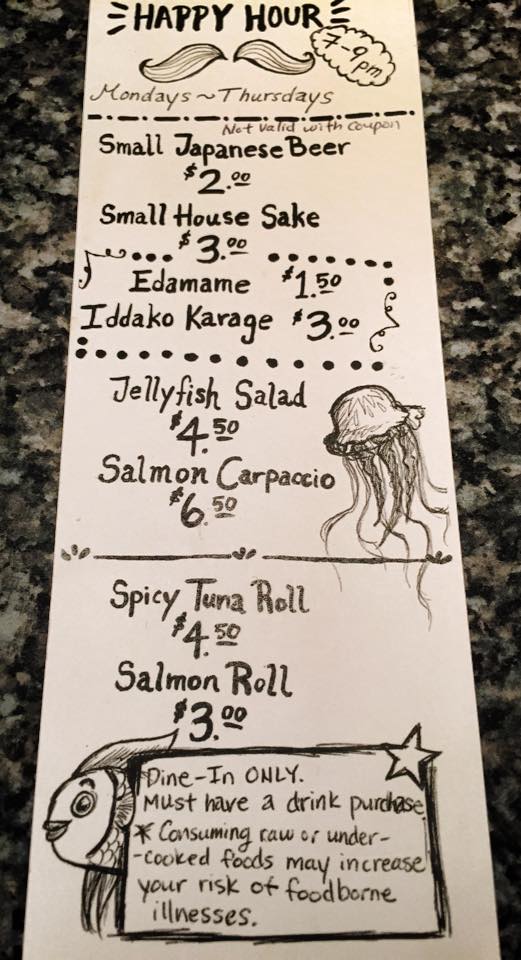 HAPPY HOUR
7-9 pm
Mondays ~ Thursdays
Not Valid with coupon
Small Japanese Beer
$2.00
Small House Sake
$3.00
Edamame $1.50
Iddako Karage $3.00
Jellyfish Salad
$4.50
Salmon Carpaccio
$6.50
Spicy Tuna Roll
$4.50
Salmon Roll
$3.00
Dine-In ONLY.
Must have a drink purchase.
* Consuming raw or under-
-cooked foods may increase
your risk of foodborne
illnesses.